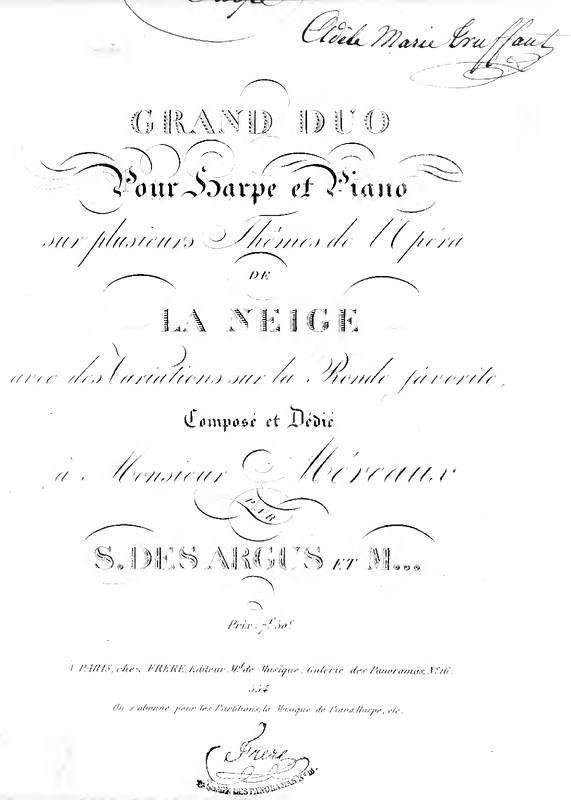 Harpe
Adèle Marie Truffaut
GRAND DUO
Pour Harpe et Piano
sur plusieurs Thêmes de l'Opéra
DE
LA NEIGE
avec des Variations sur la Ronde favorite,
Composé et Dédié
à Monsieur Méreaux
PAR
S. DESARGUS ET M...
Prix: 7f 50c
À PARIS, chez FRERE, Editeur Md de Musique, Galerie des Panoramas, No 16.
554
On s'abonne pour les Partitions, la Musique de Piano, Harpe, etc.
Frere
PASSAGE DES PANORAMAS No 16.